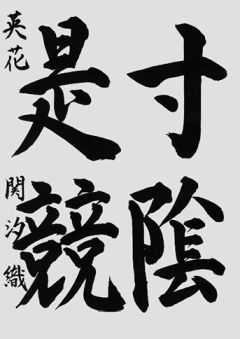 寸陰
是競
英花 関汐織